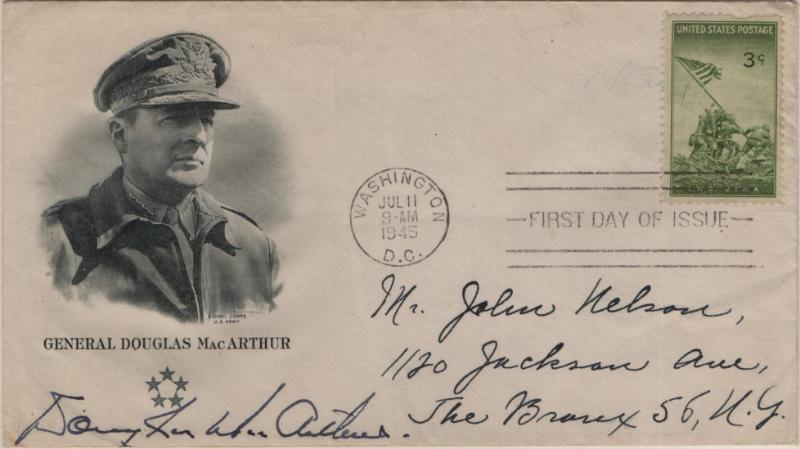 UNITED STATES POSTAGE
3¢
WASHINGTON
JUL 11
9-AM
1945
D.C.
FIRST DAY OF ISSUE
SIGNAL CORPS
U.S. ARMY
GENERAL DOUGLAS MACARTHUR
Mr. John Nelson,
1120 Jackson Ave,
The Bronx 56, N.Y.
Douglas MacArthur.